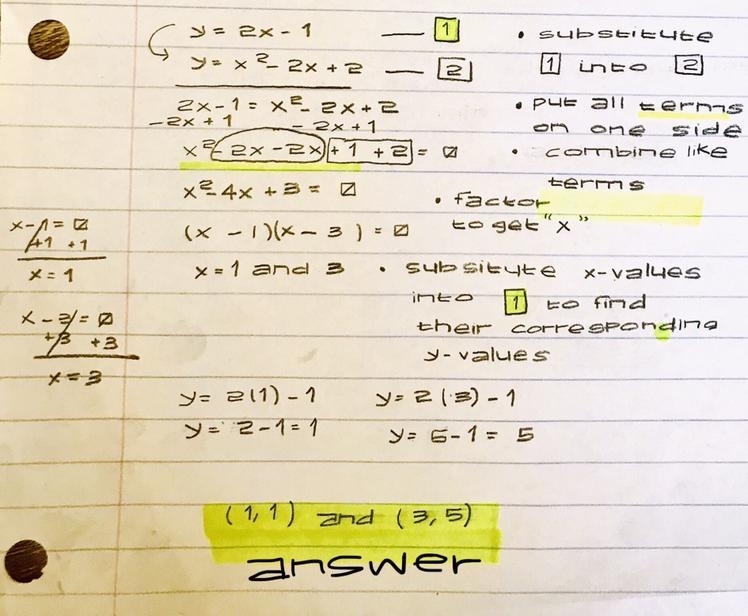 y = 2x - 1 — 1 • substitute
y = x² - 2x + 2 — 2 1 into 2
2x - 1 = x² - 2x + 2 • put all terms
-2x + 1 - 2x + 1 on one side
x² - 2x - 2x + 1 + 2 = 0 • combine like
terms
x² - 4x + 3 = 0
• factor
to get "x"
(x - 1)(x - 3) = 0
x - 1 = 0
+1 +1
x = 1
x = 1 and 3 • subsityte x-values
into 1 to find
their corresponding
y-values
x - 3 = 0
+3 +3
x = 3
y = 2(1) - 1 y = 2(3) - 1
y = 2 - 1 = 1 y = 6 - 1 = 5
(1, 1) and (3, 5)
answer